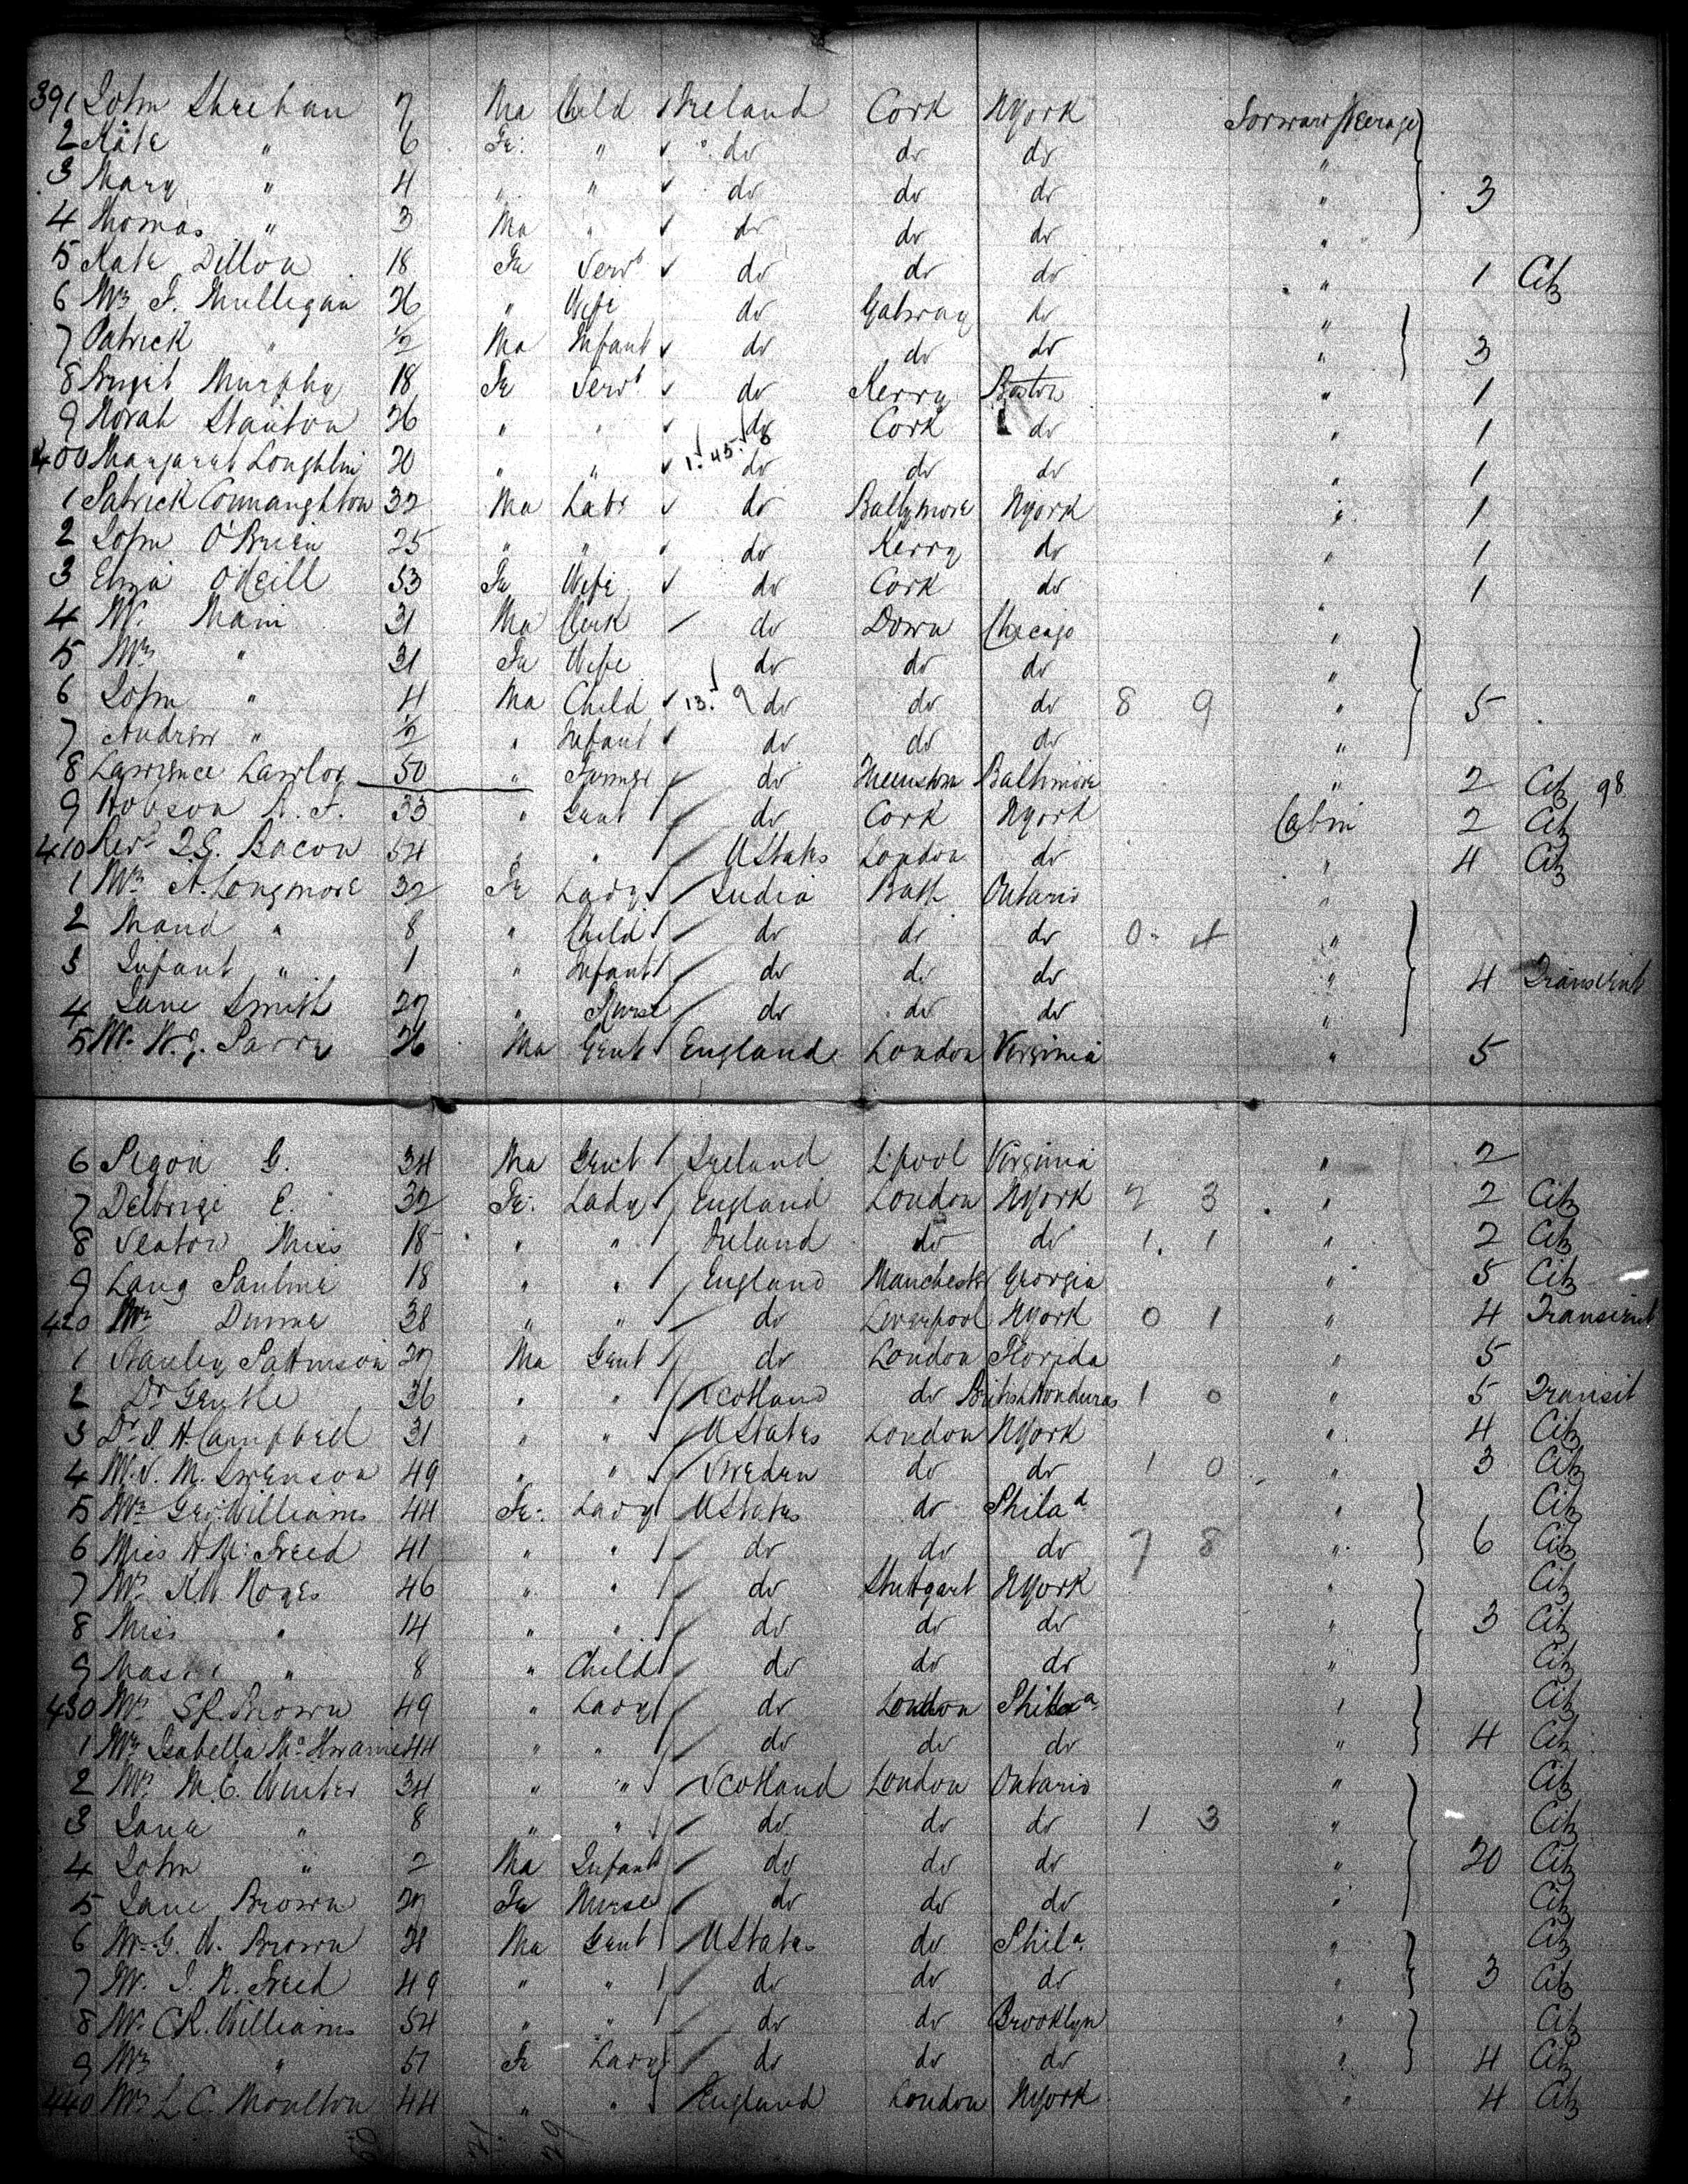 391 John Sheehan 7 Ma Child Ireland Cork NYork Forward Steerage
2 Kate " 6 Fe: " do do do "
3 Mary " 4 " " do do do " 3
4 Thomas " 3 Ma " do do do "
5 Kate Dillon 18 Fe Servt do do do " 1 Citz
6 Mrs F. Mulligan 26 " Wife do Galway do "
7 Patrick " 1/2 Ma Infant do do do " 3
8 Bridgit Murphy 18 Fe Servt do Kerry Boston " 1
9 Norah Stanton 26 " " do Cork do " 1
400 Margaret Loughlin 20 " " do do do " 1
1 Patrick Connaughton 32 Ma Labr do Ballymore NYork " 1
2 John O'Brien 25 " " do Kerry do " 1
3 Eliza O'Neill 53 Fe Wife do Cork do " 1
4 Mr. Main 31 Ma Clerk do Down Chicago "
5 Mrs " 31 Fe Wife do do do "
6 John " 4 Ma Child 13. 9 do do do 8 9 " 5
7 Andrew " 1/2 " Infant do do do "
8 Lawrence Lawlor 50 " Farmer do Baltimore " 2 Citz 98
9 Hobson A. F. 33 " Gent do Cork NYork Cabin 2 Citz
410 Revd Bacon 54 " " UStates London do " 4 Citz
1 Mrs A. Longmore 32 Fe Lady India Bath Ontario "
2 Maud " 8 " Child do do do 0 4 "
3 Infant " 1 " Infant do do do " 4 Transient
4 Jane Smith 27 " Nurse do do do "
5 Mr. W. G. Parry 26 Ma Gent England London Virginia " 5
6 Pigou G. 34 Ma Gent Ireland L'pool Virginia " 2
7 E. 32 Fe: Lady England London NYork 2 3 " 2 Citz
8 Seaton Miss 18 " " Ireland do do 1. 1 " 2 Citz
9 Lang Pauline 18 " " England Manchester Georgia " 5 Citz
420 Mrs Dunne 38 " " do Liverpool NYork 0 1 " 4 Transient
1 Stanley Pattinson 27 Ma Gent do London Florida " 5
2 Dr Gentle 36 " " Scotland do British Honduras 1 0 " 5 Transit
3 Dr J. H. Campbell 31 " " UStates London NYork " 4 Citz
4 M. S. M. Swenson 49 " " Sweden do do 1 0 " 3 Citz
5 Mrs Geo: Williams 44 Fe: Lady UStates do Philad " Citz
6 Miss H. M. Freed 41 " " do do do 7 8 " 6 Citz
7 Mrs Noyes 46 " " do Stuttgart NYork " Citz
8 Miss " 14 " " do do do " 3 Citz
9 " 8 " Child do do do " Citz
430 Mrs S R Brown 49 " Lady do London Phila " Citz
1 Mrs Isabella 44 " " do do do " 4 Citz
2 Mrs M. E. Winter 34 " " Scotland London Ontario " Citz
3 Jane " 8 " " do do do 1 3 " Citz
4 John " 2 Ma Infant do do do " 20 Citz
5 Jane Brown 27 Fe Nurse do do do " Citz
6 Mr. G. W. Brown 28 Ma Gent UStates do Phila " Citz
7 Mr. J. N. Freed 49 " " do do do " 3 Citz
8 Mr. C R. Williams 54 " " do do Brooklyn " Citz
9 Mrs " 51 Fe Lady do do do " 4 Citz
440 Mrs L C. Moulton 44 " " England London NYork " 4 Citz